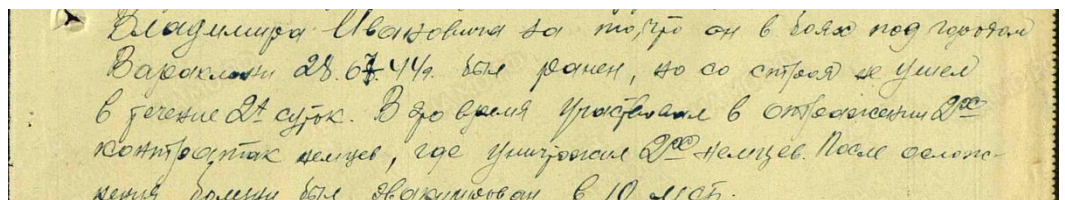 Владимира Ивановича за то, что он в боях под городом
Вараклани 28.07.44г. был ранен, но со строя не ушел
в течение 2х суток. В это время участвовал в отражении 2ух
контратак немцев, где уничтожил 2ух немцев. После ослож-
нения болезни был эвакуирован в 10 мсб.